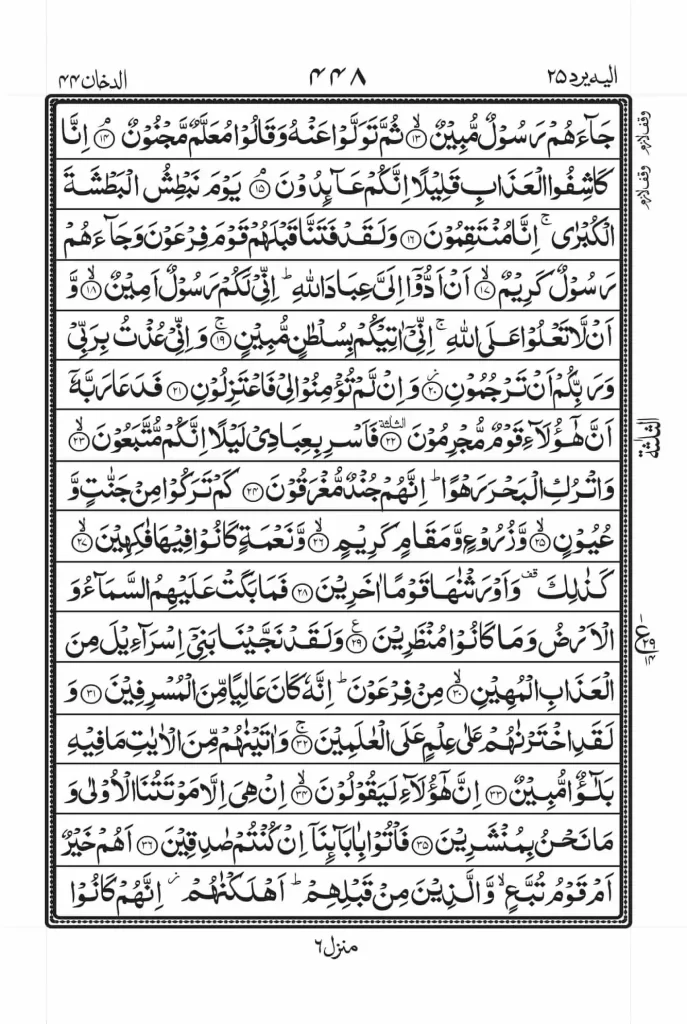 اليه يرد ۲۵ ۴۴۸ الدخان ۴۴
جَآءَهُمۡ رَسُوۡلٌ مُّبِيۡنٌ ۙ‏﴿۱۳﴾ ثُمَّ تَوَلَّوۡا عَنۡهُ وَقَالُوۡا مُعَلَّمٌ مَّجۡنُوۡنٌ‌ ۘ‏﴿۱۴﴾ اِنَّا
كَاشِفُوا الۡعَذَابِ قَلِيۡلًا اِنَّكُمۡ عَآٮِٕدُوۡنَ‌ ۘ‏﴿۱۵﴾ يَوۡمَ نَبۡطِشُ الۡبَطۡشَةَ
الۡكُبۡرٰى‌ۚ اِنَّا مُنۡتَقِمُوۡنَ‏﴿۱۶﴾ وَلَقَدۡ فَتَنَّا قَبۡلَهُمۡ قَوۡمَ فِرۡعَوۡنَ وَجَآءَهُمۡ
رَسُوۡلٌ كَرِيۡمٌ ۙ‏﴿۱۷﴾ اَنۡ اَدُّوۡۤا اِلَىَّ عِبَادَ اللّٰهِ‌ؕ اِنِّىۡ لَكُمۡ رَسُوۡلٌ اَمِيۡنٌ ۙ‏﴿۱۸﴾ وَّ
اَنۡ لَّا تَعۡلُوۡا عَلَى اللّٰهِ‌ۚ اِنِّىۡۤ اٰتِيۡكُمۡ بِسُلۡطٰنٍ مُّبِيۡنٍ‌ۚ‏﴿۱۹﴾ وَاِنِّىۡ عُذۡتُ بِرَبِّىۡ
وَرَبِّكُمۡ اَنۡ تَرۡجُمُوۡنِ ‏﴿۲۰﴾ وَاِنۡ لَّمۡ تُؤۡمِنُوۡا لِىۡ فَاعۡتَزِلُوۡنِ‏﴿۲۱﴾ فَدَعَا رَبَّهٗۤ
اَنَّ هٰٓؤُلَاۤءِ قَوۡمٌ مُّجۡرِمُوۡنَ‏﴿۲۲﴾ فَاَسۡرِ بِعِبَادِىۡ لَيۡلًا اِنَّكُمۡ مُّتَّبَعُوۡنَۙ‏﴿۲۳﴾
وَاتۡرُكِ الۡبَحۡرَ رَهۡوًا‌ؕ اِنَّهُمۡ جُنۡدٌ مُّغۡرَقُوۡنَ‏﴿۲۴﴾ كَمۡ تَرَكُوۡا مِنۡ جَنّٰتٍ وَّ
عُيُوۡنٍۙ‏﴿۲۵﴾ وَّزُرُوۡعٍ وَّمَقَامٍ كَرِيۡمٍۙ‏﴿۲۶﴾ وَّنَعۡمَةٍ كَانُوۡا فِيۡهَا فٰكِهِيۡنَۙ‏﴿۲۷﴾
كَذٰلِكَ قف وَاَوۡرَثۡنٰهَا قَوۡمًا اٰخَرِيۡنَ‏﴿۲۸﴾ فَمَا بَكَتۡ عَلَيۡهِمُ السَّمَآءُ وَ
الۡاَرۡضُ وَمَا كَانُوۡا مُنۡظَرِيۡنَ‏﴿۲۹﴾ وَلَقَدۡ نَجَّيۡنَا بَنِىۡۤ اِسۡرَآءِيۡلَ مِنَ
الۡعَذَابِ الۡمُهِيۡنِۙ‏﴿۳۰﴾ مِنۡ فِرۡعَوۡنَ‌ؕ اِنَّهٗ كَانَ عَالِيًا مِّنَ الۡمُسۡرِفِيۡنَ‏﴿۳۱﴾ وَ
لَقَدِ اخۡتَرۡنٰهُمۡ عَلٰى عِلۡمٍ عَلَى الۡعٰلَمِيۡنَ‌ۚ‏﴿۳۲﴾ وَاٰتَيۡنٰهُمۡ مِّنَ الۡاٰيٰتِ مَا فِيۡهِ
بَلٰٓؤٌا مُّبِيۡنٌ‏﴿۳۳﴾ اِنَّ هٰٓؤُلَاۤءِ لَيَقُوۡلُوۡنَۙ‏﴿۳۴﴾ اِنۡ هِىَ اِلَّا مَوۡتَتُنَا الۡاُوۡلٰى وَ
مَا نَحۡنُ بِمُنۡشَرِيۡنَ‏﴿۳۵﴾ فَاۡتُوۡا بِاٰبَآٮِٕنَاۤ اِنۡ كُنۡتُمۡ صٰدِقِيۡنَ‏﴿۳۶﴾ اَهُمۡ خَيۡرٌ
اَمۡ قَوۡمُ تُبَّعٍۙ وَّالَّذِيۡنَ مِنۡ قَبۡلِهِمۡ‌ؕ اَهۡلَكۡنٰهُمۡ‌ اِنَّهُمۡ كَانُوۡا
وقف لازم
وقف لازم
الثلثة
ع ۲۹
منزل ۶